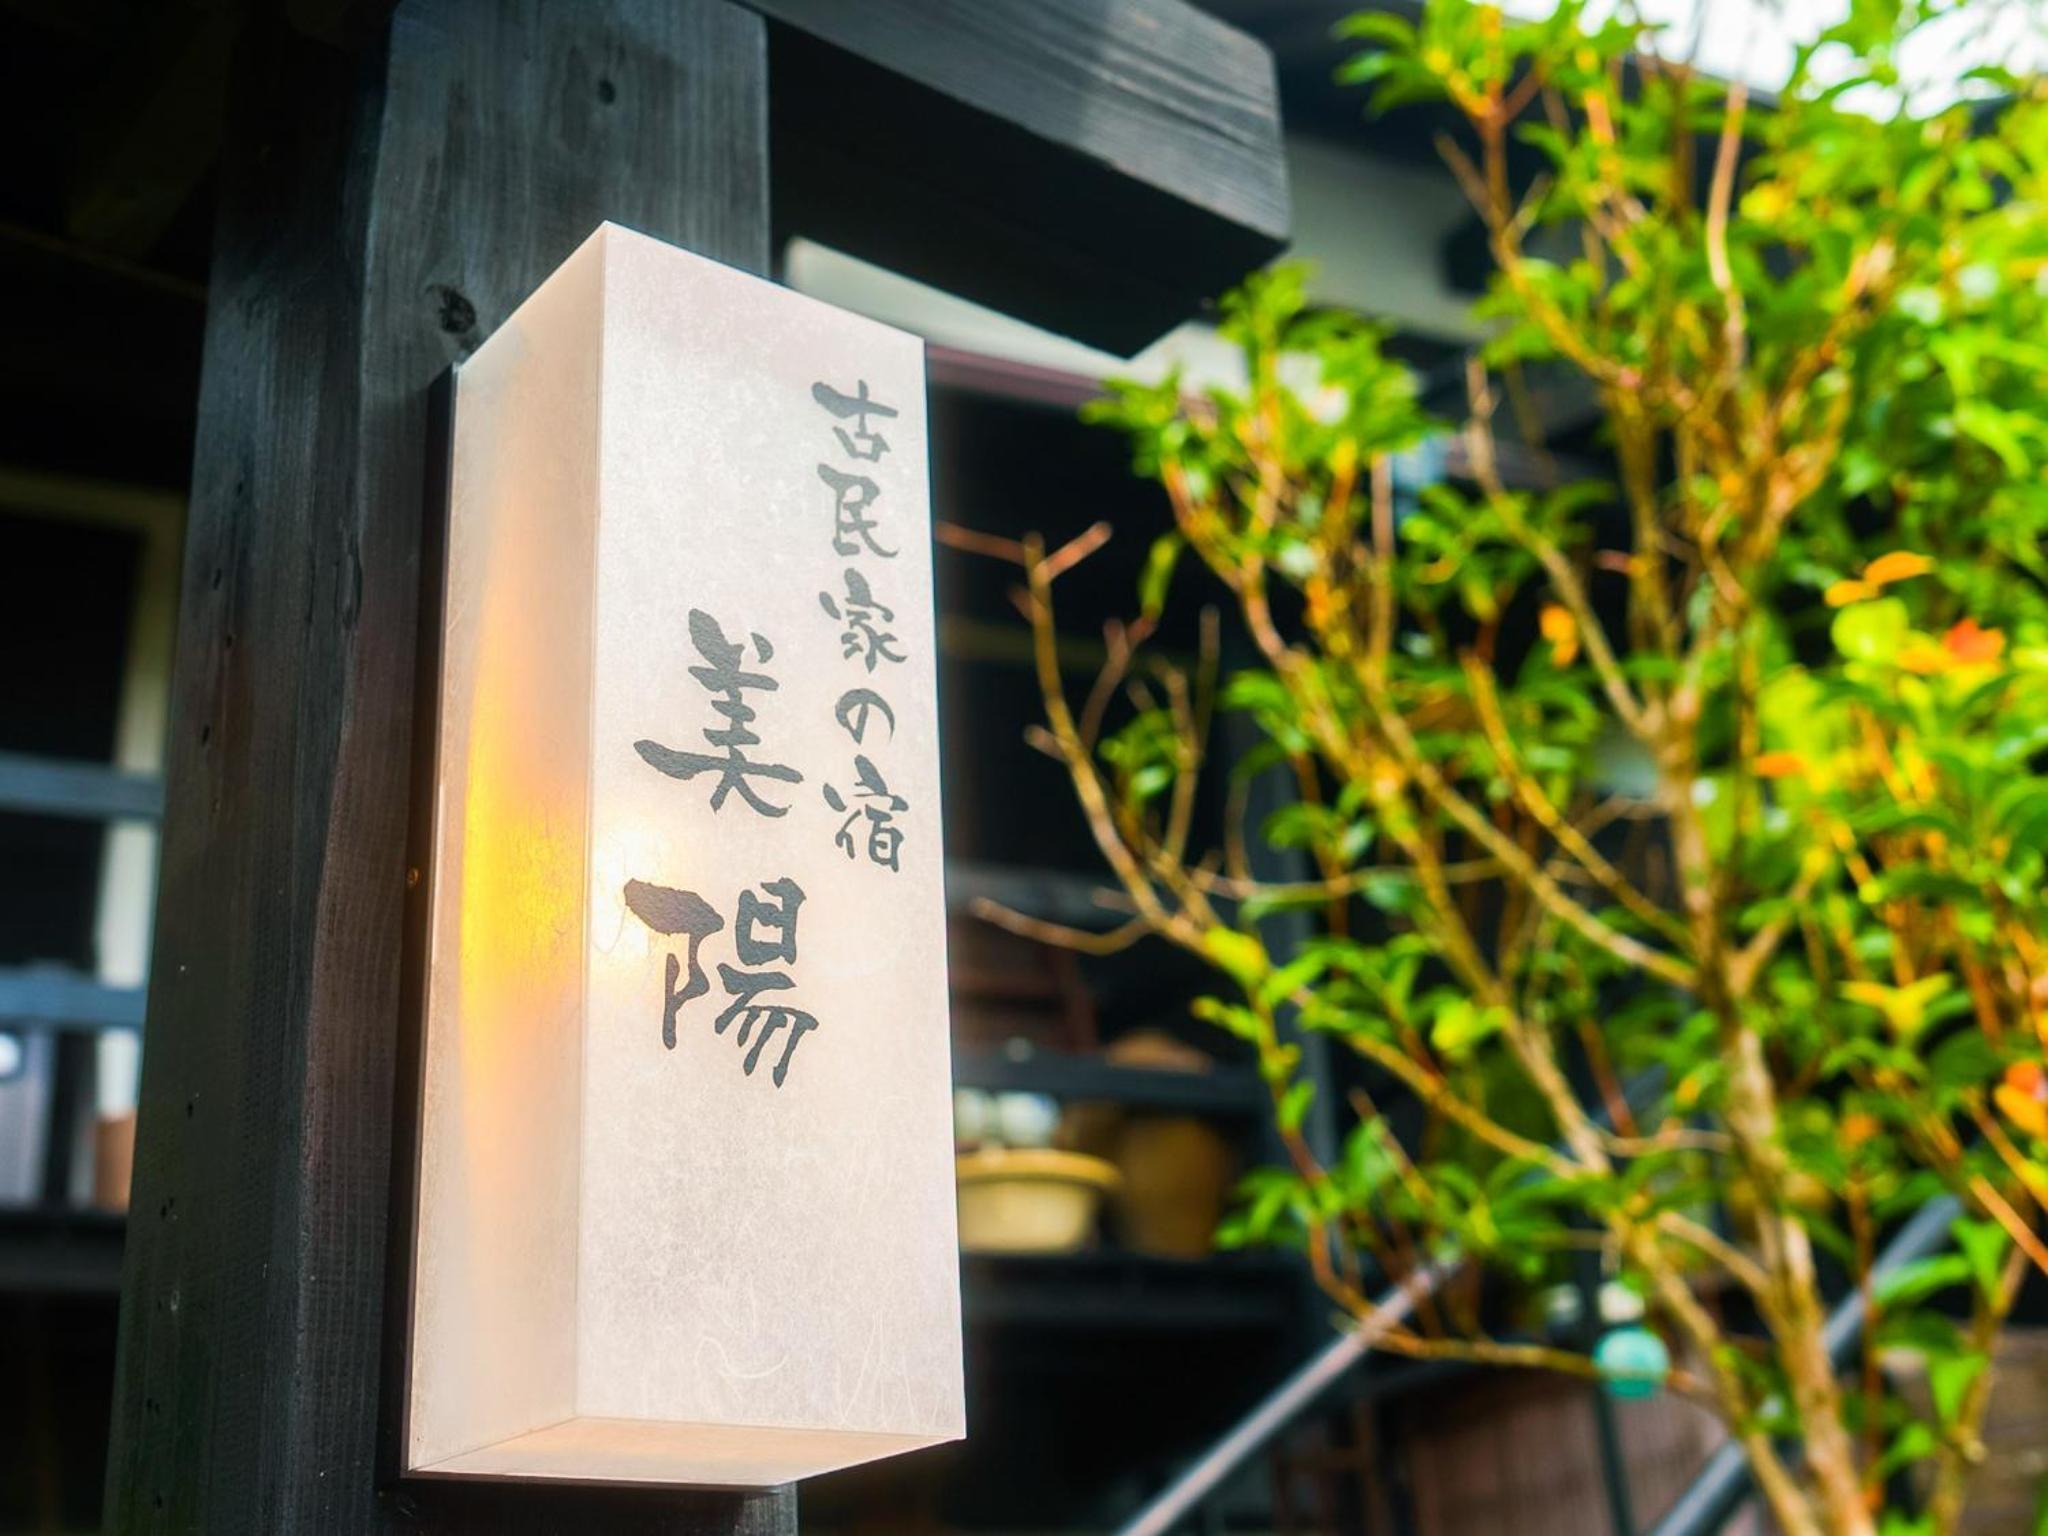 古民家の宿
美陽